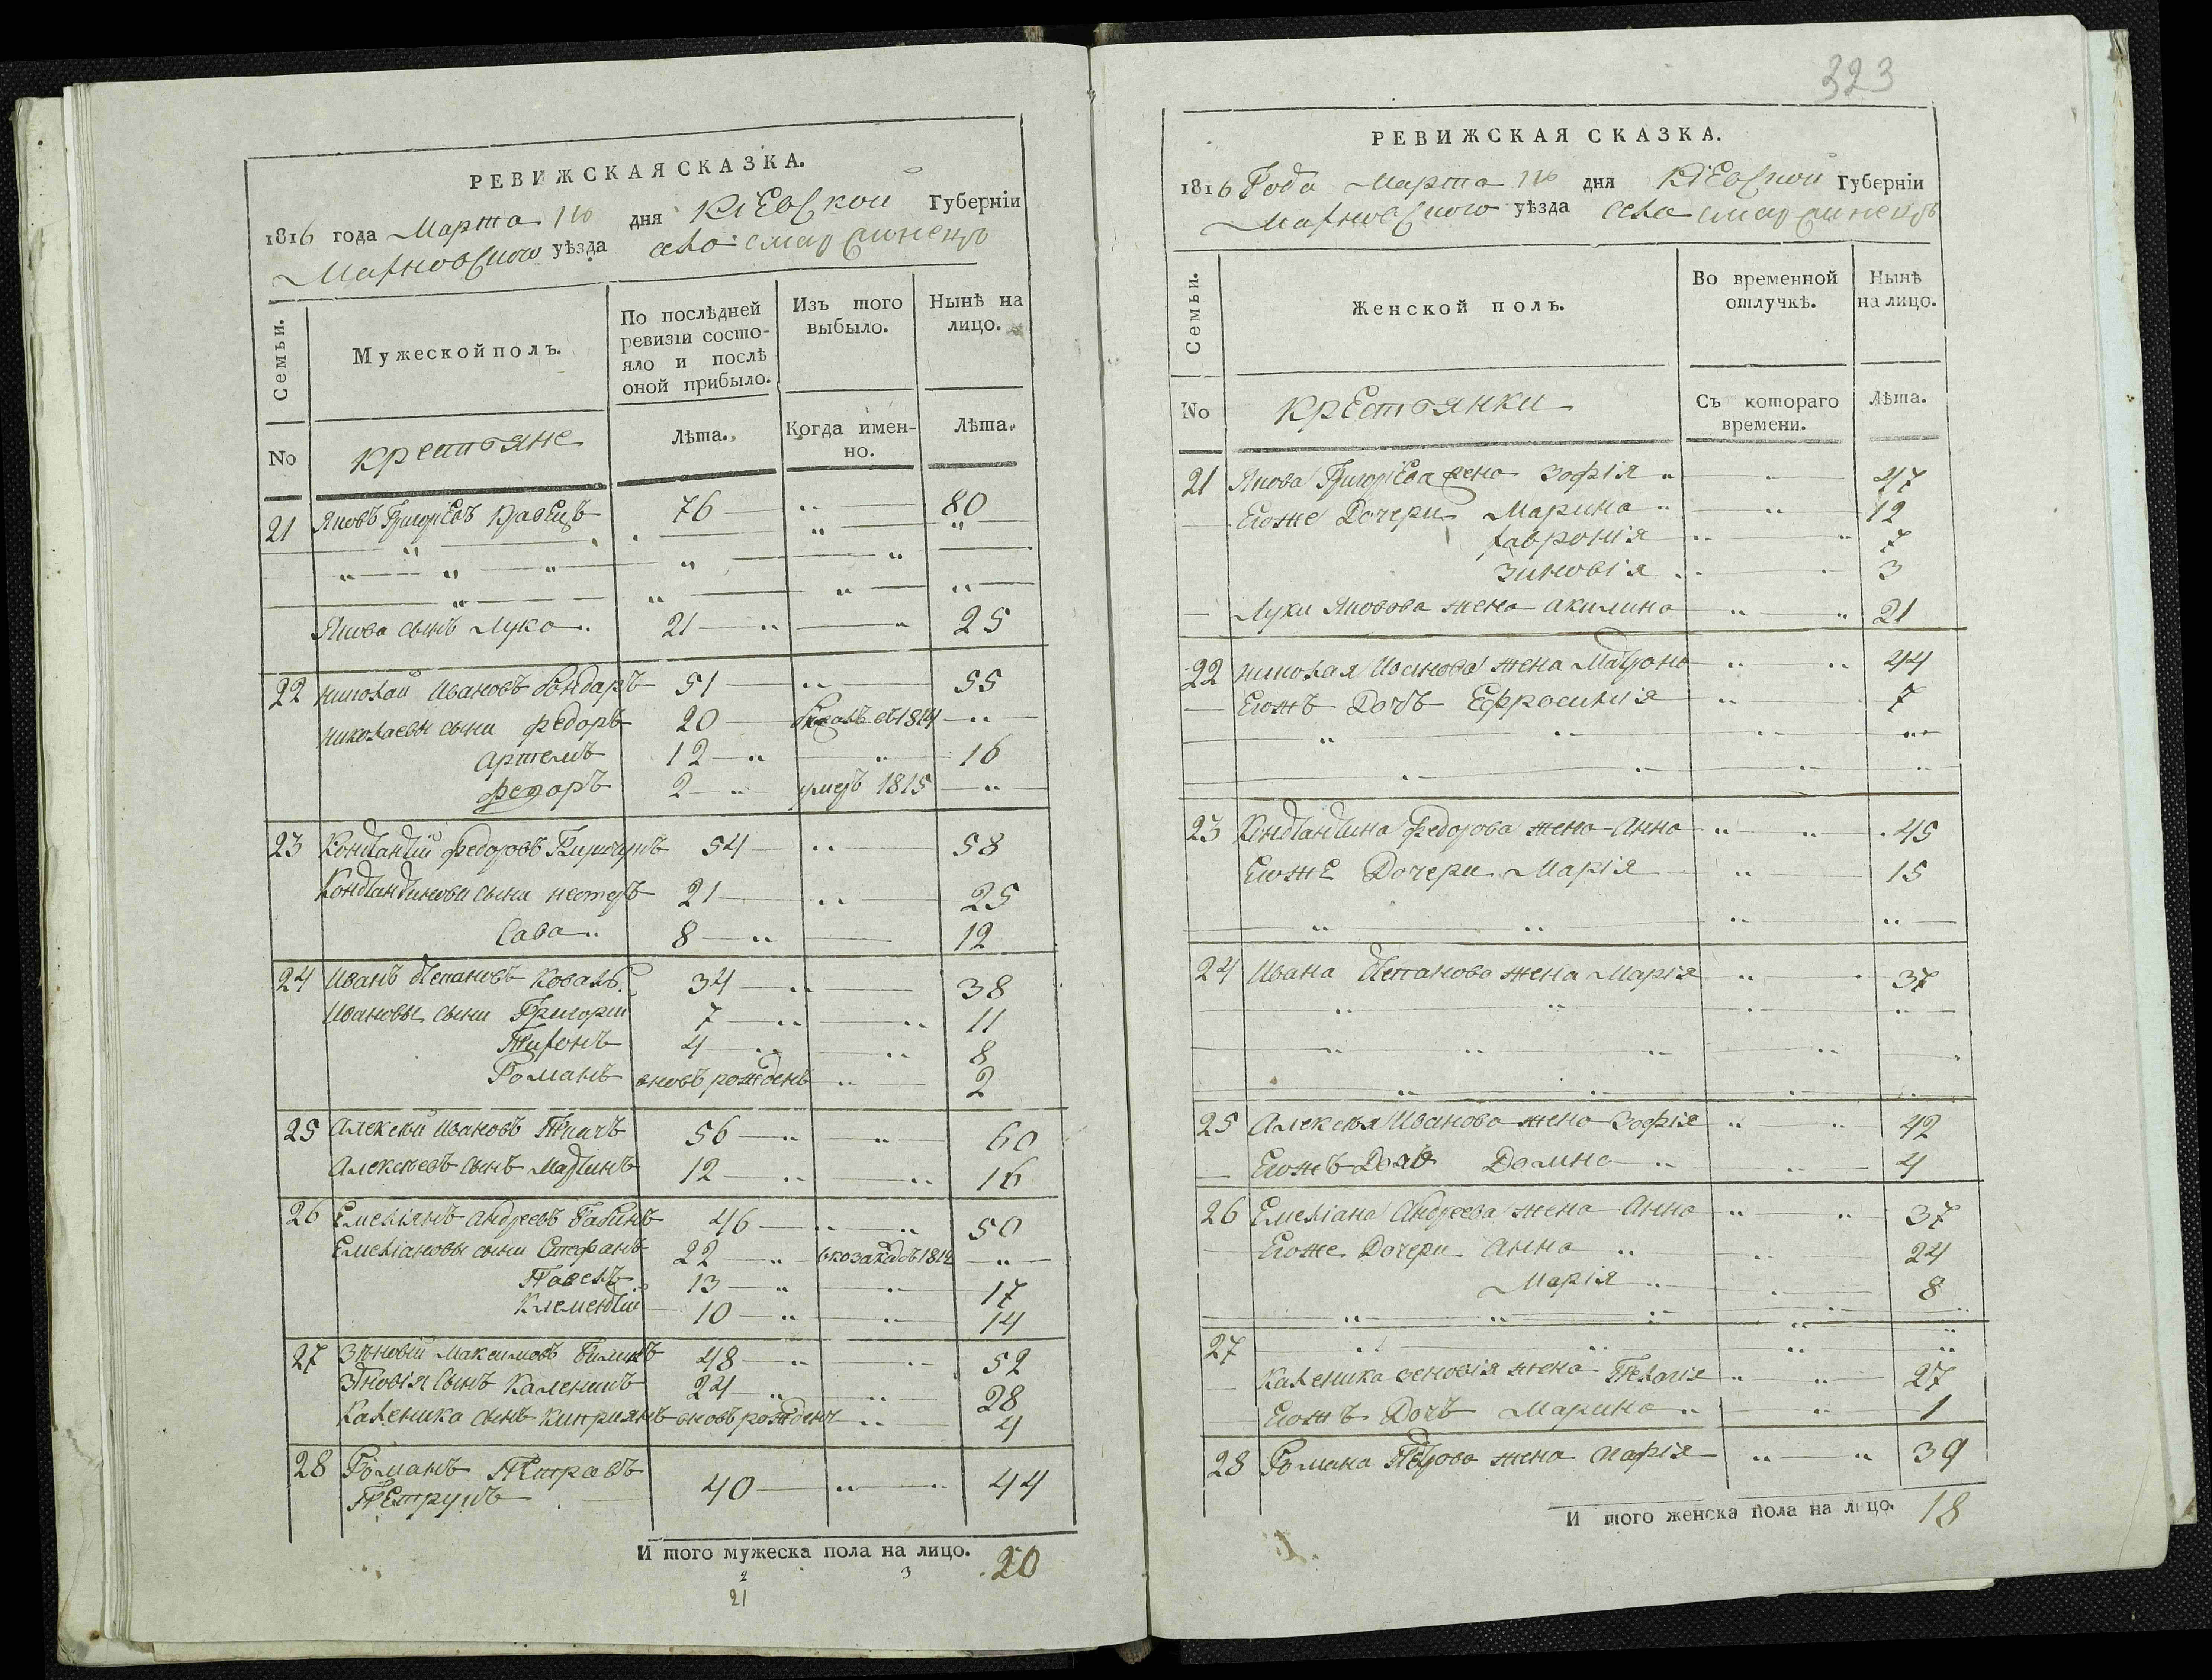 РЕВИЖСКАЯ СКАЗКА.
1816 года Марта дня Кіевской Губерніи
Махновского уѣзда село
Семьи.
Мужеской полъ.
По послѣдней ревизіи состояло и послѣ оной прибыло.
Изъ того выбыло.
Нынѣ на лицо.
No
крестьяне
Лѣта.
Когда имен-
но.
Лѣта.
21 Яковъ Григорьевъ Кравецъ 76 80
Якова сынъ Лука 21 25
22 Николай Ивановъ Бондаръ 51 55
Николаевы сыни Федоръ 20 1814
Артемъ 12 16
Федоръ 2 умеръ 1815
23 Константій Федоровъ 54 58
Константинови сыни Нестеръ 21 25
Сава 8 12
24 Иванъ Степановъ Коваль 34 38
Ивановы сыни Григорій 7 11
Тихонъ 4 8
Романъ вновъ рожденъ 2
25 Алексей Ивановъ Ткачъ 56 60
Алексѣевъ сынъ Мартинъ 12 16
26 Емеліянъ Андреевъ 46 50
Емеліановы сыни Стефанъ 22
Павелъ 13 17
Клементій 10 14
27 Зѣновій Максимовъ 48 52
Зѣновія сынъ Каленикъ 24 28
Каленика сынъ Киприянъ вновъ рожденъ 4
28 Романъ Петровъ 40 44
Петрукъ
И того мужеска пола на лицо. 20
2 3
21
323
РЕВИЖСКАЯ СКАЗКА.
1816 Года Марта дня Кіевской Губерніи
Махновского уѣзда село
Семьи.
Женской полъ.
Во временной отлучкѣ.
Нынѣ на лицо.
No
крестьянки
Съ котораго
времени.
Лѣта.
21 Якова Григорьева жена Зофія 47
Егоже Дочери Марина 12
Гавронія 7
Зиновія 3
Луки Яковова жена Акилина 21
22 Николая Иванова жена Матрона 44
Егожъ Дочъ Ефросинія 7
23 Константина Федорова жена Анна 45
Егоже Дочери Марія 15
24 Ивана Степанова жена Марія 37
25 Алексея Иванова жена Зофія 42
Егожъ Домна 4
26 Емеліана Андреева жена Анна 37
Егоже Дочери Анна 24
Марія 8
27
Каленика зеновія жена Пелагія 27
Егожъ Дочъ Марина 1
28 Романа Петрова жена 39
И того женска пола на лицо. 18